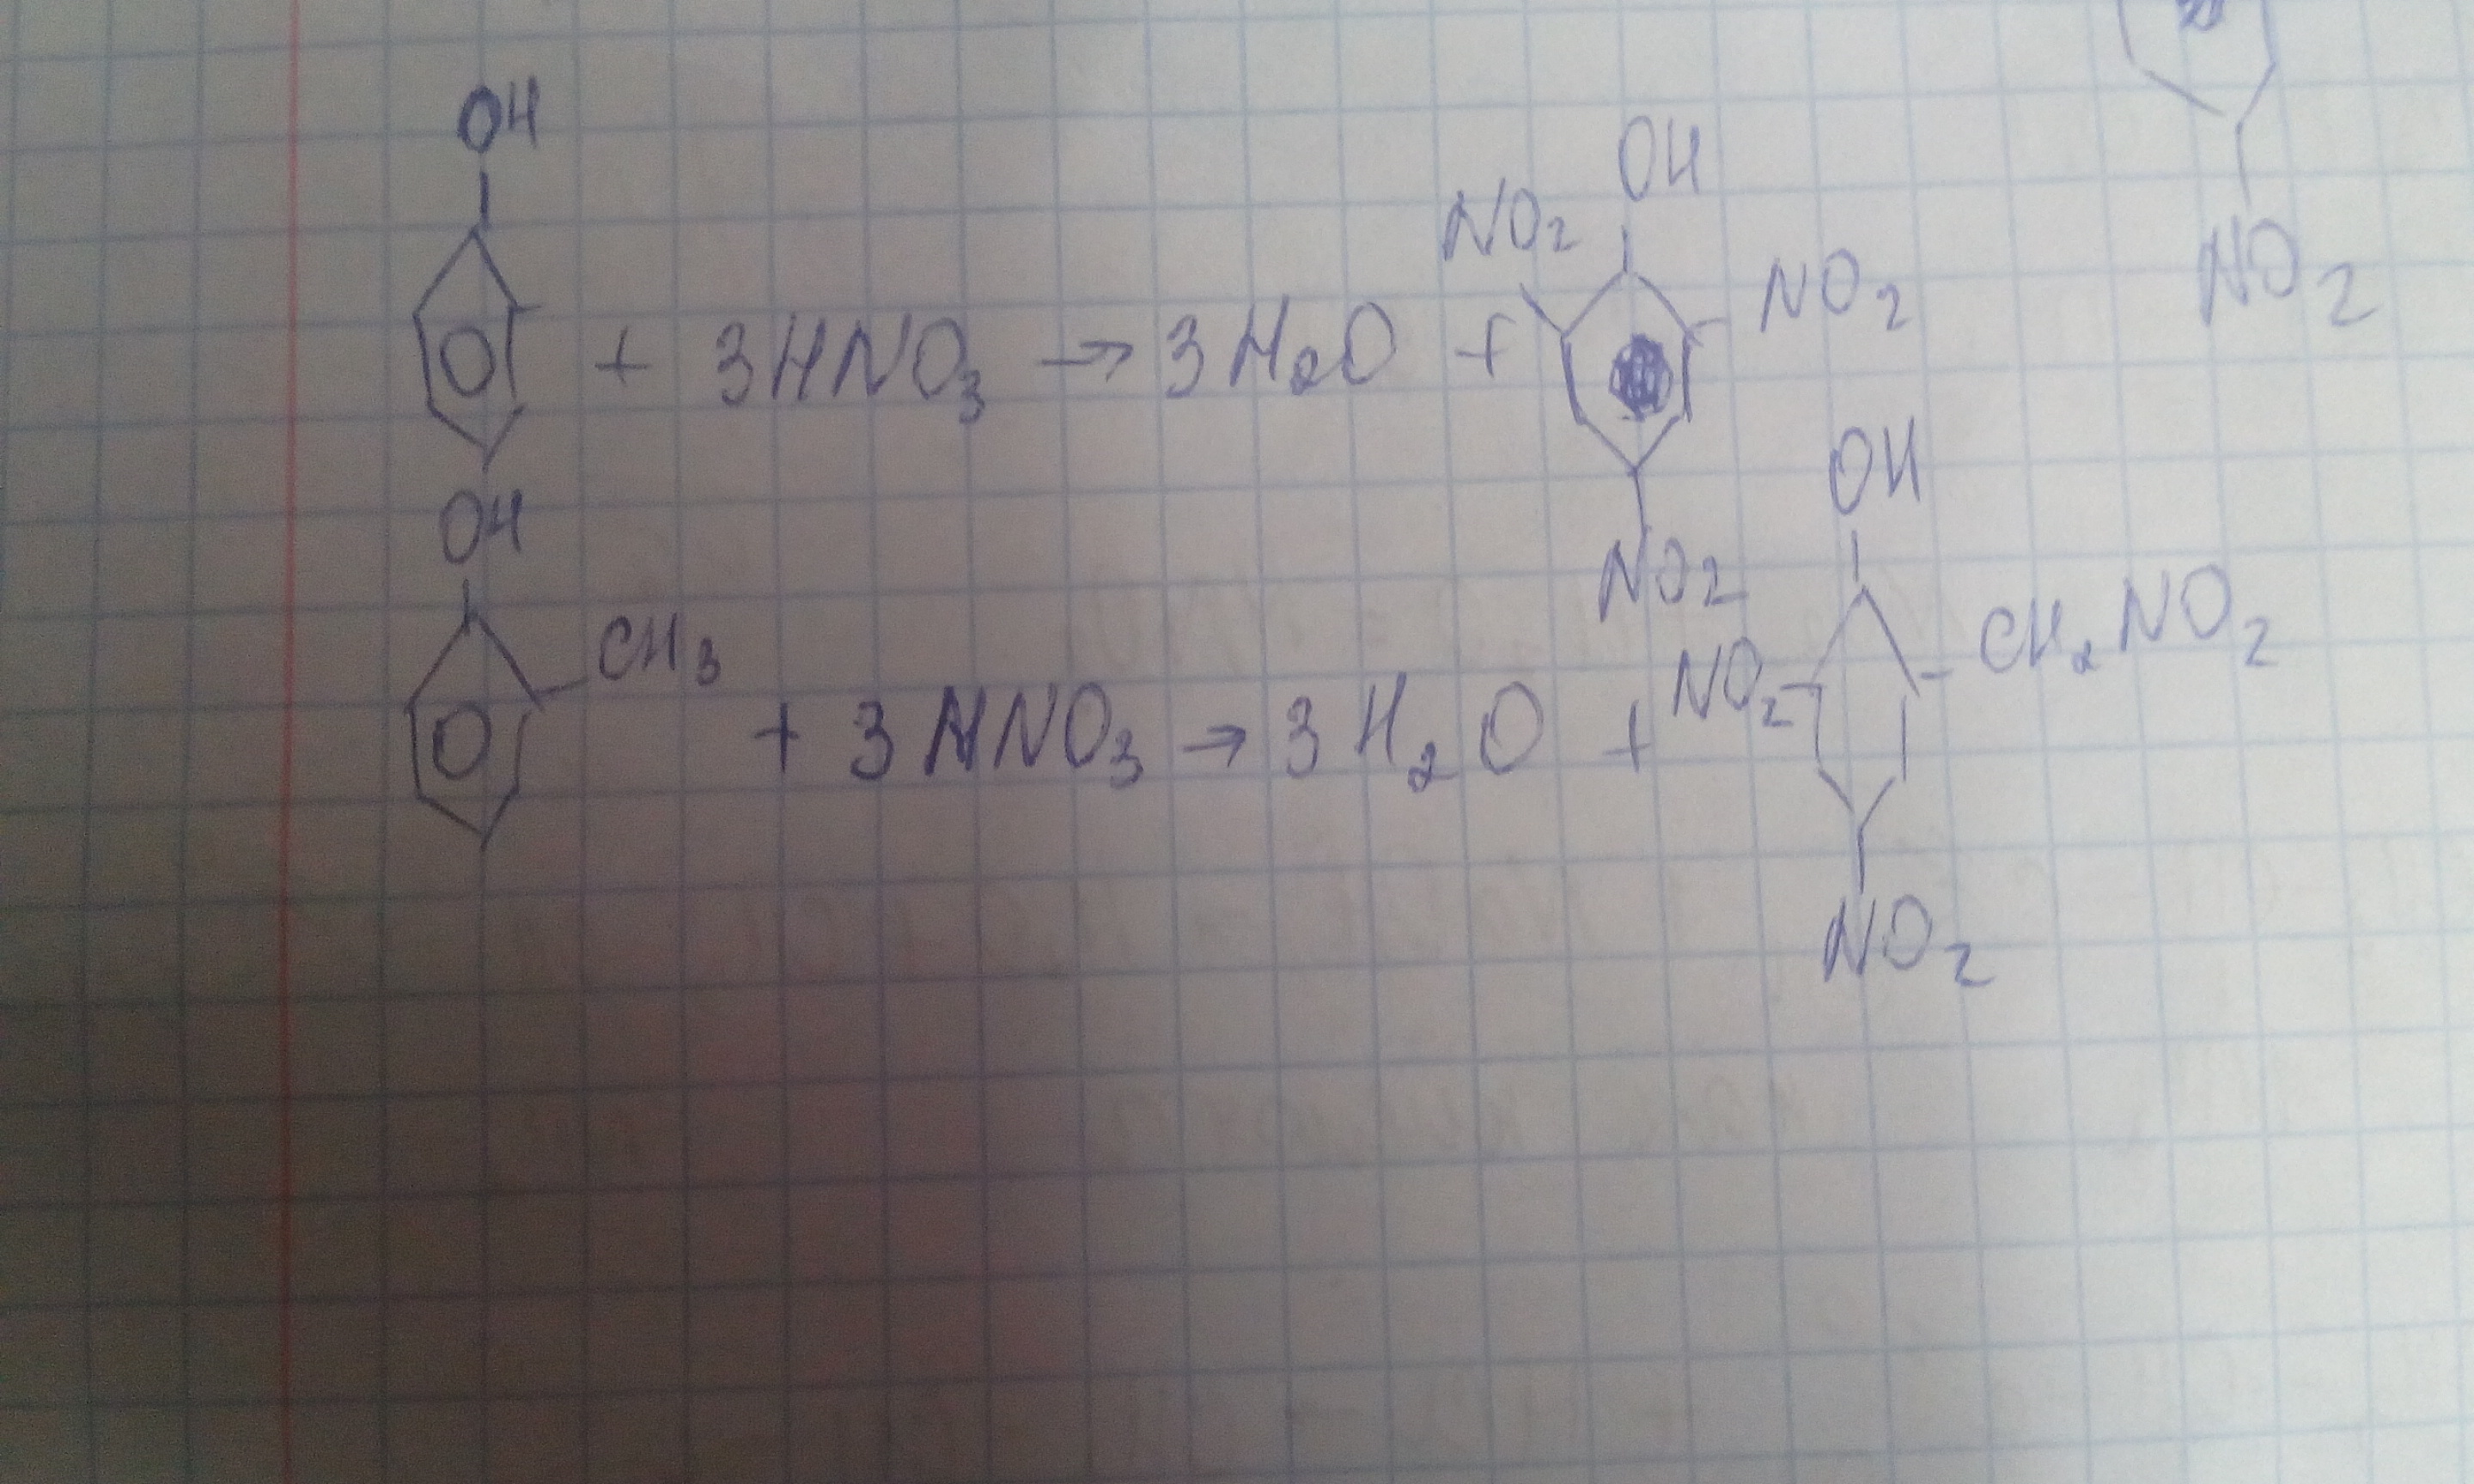 OH
NO₂ OH NO₂
+ 3HNO₃ → 3H₂O +
NO₂
NO₂
OH CH₃
+ 3HNO₃ → 3H₂O +
OH
NO₂ CH₂NO₂
NO₂